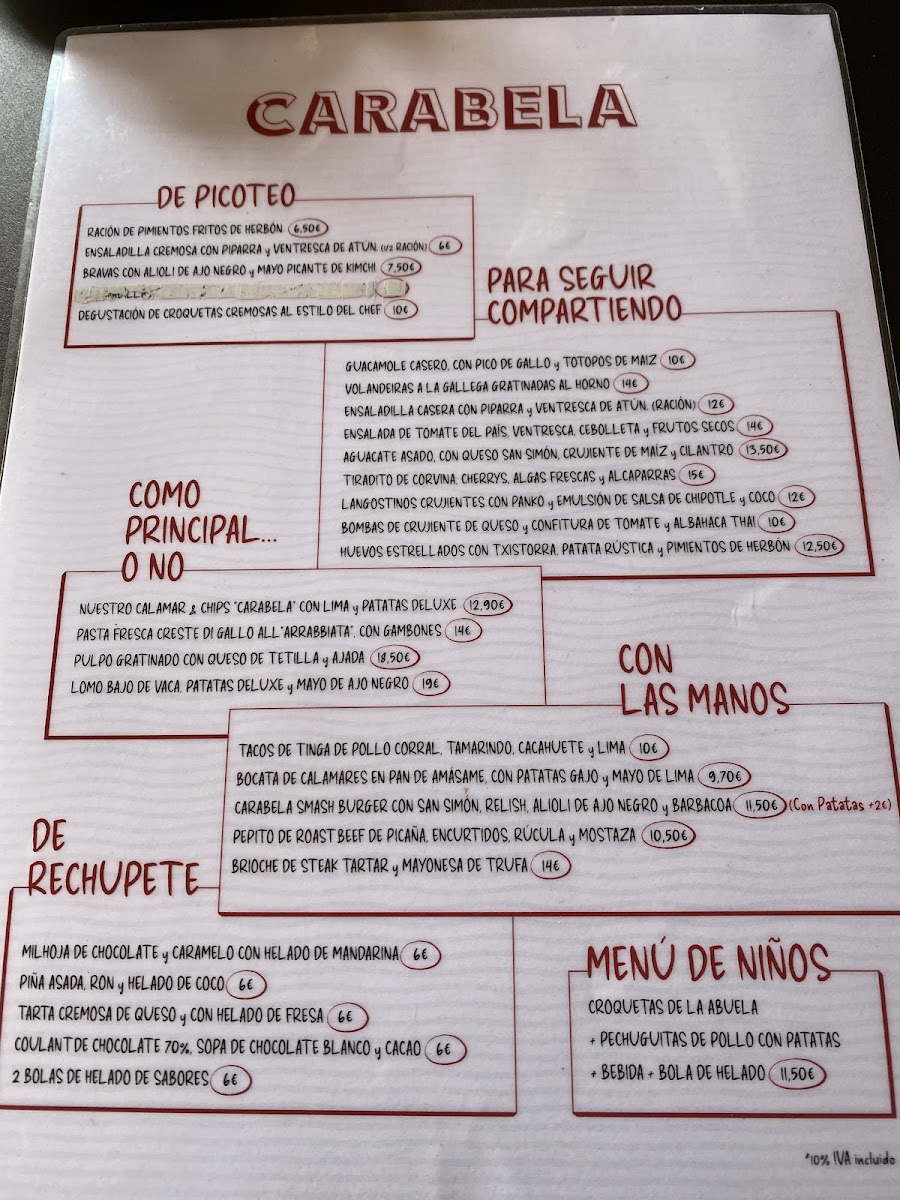 CARABELA
DE PICOTEO
RACIÓN DE PIMIENTOS FRITOS DE HERBÓN 6,50€
ENSALADILLA CREMOSA CON PIPARRA y VENTRESCA DE ATÚN. (1/2 RACIÓN) 6€
BRAVAS CON ALIOLI DE AJO NEGRO y MAYO PICANTE DE KIMCHI 7,50€
DEGUSTACIÓN DE CROQUETAS CREMOSAS AL ESTILO DEL CHEF 10€
PARA SEGUIR
COMPARTIENDO
GUACAMOLE CASERO, CON PICO DE GALLO y TOTOPOS DE MAIZ 10€
VOLANDEIRAS A LA GALLEGA GRATINADAS AL HORNO 14€
ENSALADILLA CASERA CON PIPARRA y VENTRESCA DE ATÚN. (RACIÓN) 12€
ENSALADA DE TOMATE DEL PAÍS, VENTRESCA, CEBOLLETA y FRUTOS SECOS 14€
AGUACATE ASADO, CON QUESO SAN SIMÓN, CRUJIENTE DE MAÍZ y CILANTRO 13,50€
TIRADITO DE CORVINA, CHERRYS, ALGAS FRESCAS y ALCAPARRAS 15€
LANGOSTINOS CRUJIENTES CON PANKO y EMULSIÓN DE SALSA DE CHIPOTLE y COCO 12€
BOMBAS DE CRUJIENTE DE QUESO y CONFITURA DE TOMATE y ALBAHACA THAI 10€
HUEVOS ESTRELLADOS CON TXISTORRA, PATATA RÚSTICA y PIMIENTOS DE HERBÓN 12,50€
COMO
PRINCIPAL...
O NO
NUESTRO CALAMAR & CHIPS "CARABELA" CON LIMA y PATATAS DELUXE 12,90€
PASTA FRESCA CRESTE DI GALLO ALL"ARRABBIATA", CON GAMBONES 14€
PULPO GRATINADO CON QUESO DE TETILLA y AJADA 18,50€
LOMO BAJO DE VACA, PATATAS DELUXE y MAYO DE AJO NEGRO 19€
CON
LAS MANOS
TACOS DE TINGA DE POLLO CORRAL, TAMARINDO, CACAHUETE y LIMA 10€
BOCATA DE CALAMARES EN PAN DE AMÁSAME, CON PATATAS GAJO y MAYO DE LIMA 9,70€
CARABELA SMASH BURGER CON SAN SIMÓN, RELISH, ALIOLI DE AJO NEGRO y BARBACOA 11,50€ (Con Patatas +2€)
PEPITO DE ROAST BEEF DE PICAÑA, ENCURTIDOS, RÚCULA y MOSTAZA 10,50€
BRIOCHE DE STEAK TARTAR y MAYONESA DE TRUFA 14€
DE
RECHUPETE
MILHOJA DE CHOCOLATE y CARAMELO CON HELADO DE MANDARINA 6€
PIÑA ASADA, RON y HELADO DE COCO 6€
TARTA CREMOSA DE QUESO y CON HELADO DE FRESA 6€
COULANT DE CHOCOLATE 70%, SOPA DE CHOCOLATE BLANCO y CACAO 6€
2 BOLAS DE HELADO DE SABORES 6€
MENÚ DE NIÑOS
CROQUETAS DE LA ABUELA
+ PECHUGUITAS DE POLLO CON PATATAS
+ BEBIDA + BOLA DE HELADO 11,50€
*10% IVA incluido